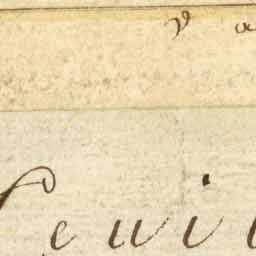 v a
feuil